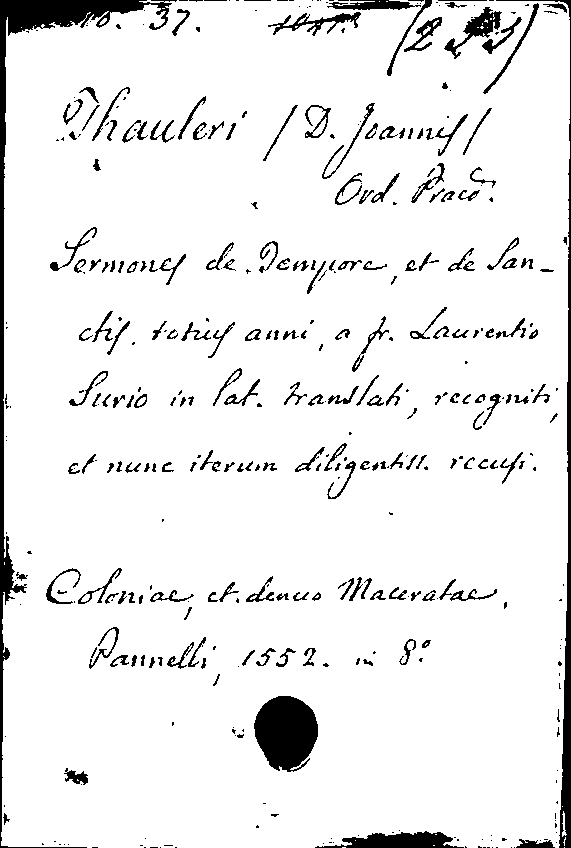 10. 37. (223)
Thauleri / D. Joannis /
Ord. Praed.
Sermones de Tempore, et de San-
ctis. totius anni, a fr. Laurentio
Surio in lat. translati, recogniti,
et nunc iterum diligentiss. recusi.
Coloniae, et denuo Maceratae.
Pannelli, 1552. in 8°